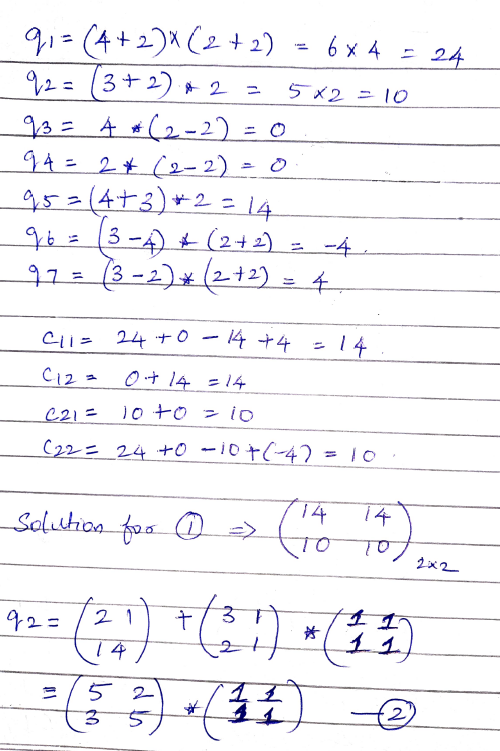 q1 = (4+2)×(2+2) = 6×4 = 24
q2 = (3+2) * 2 = 5×2 = 10
q3 = 4 * (2-2) = 0
q4 = 2 * (2-2) = 0
q5 = (4+3) * 2 = 14
q6 = (3-4) * (2+2) = -4.
q7 = (3-2) * (2+2) = 4
C11 = 24 + 0 - 14 + 4 = 14
C12 = 0 + 14 = 14
C21 = 10 + 0 = 10
C22 = 24 + 0 - 10 + (-4) = 10.
Solution for ① ⇒ (14 14
10 10) 2×2
q2 = (2 1
1 4) + (3 1
2 1) * (1 1
1 1)
= (5 2
3 5) * (1 1
1 1) — ②